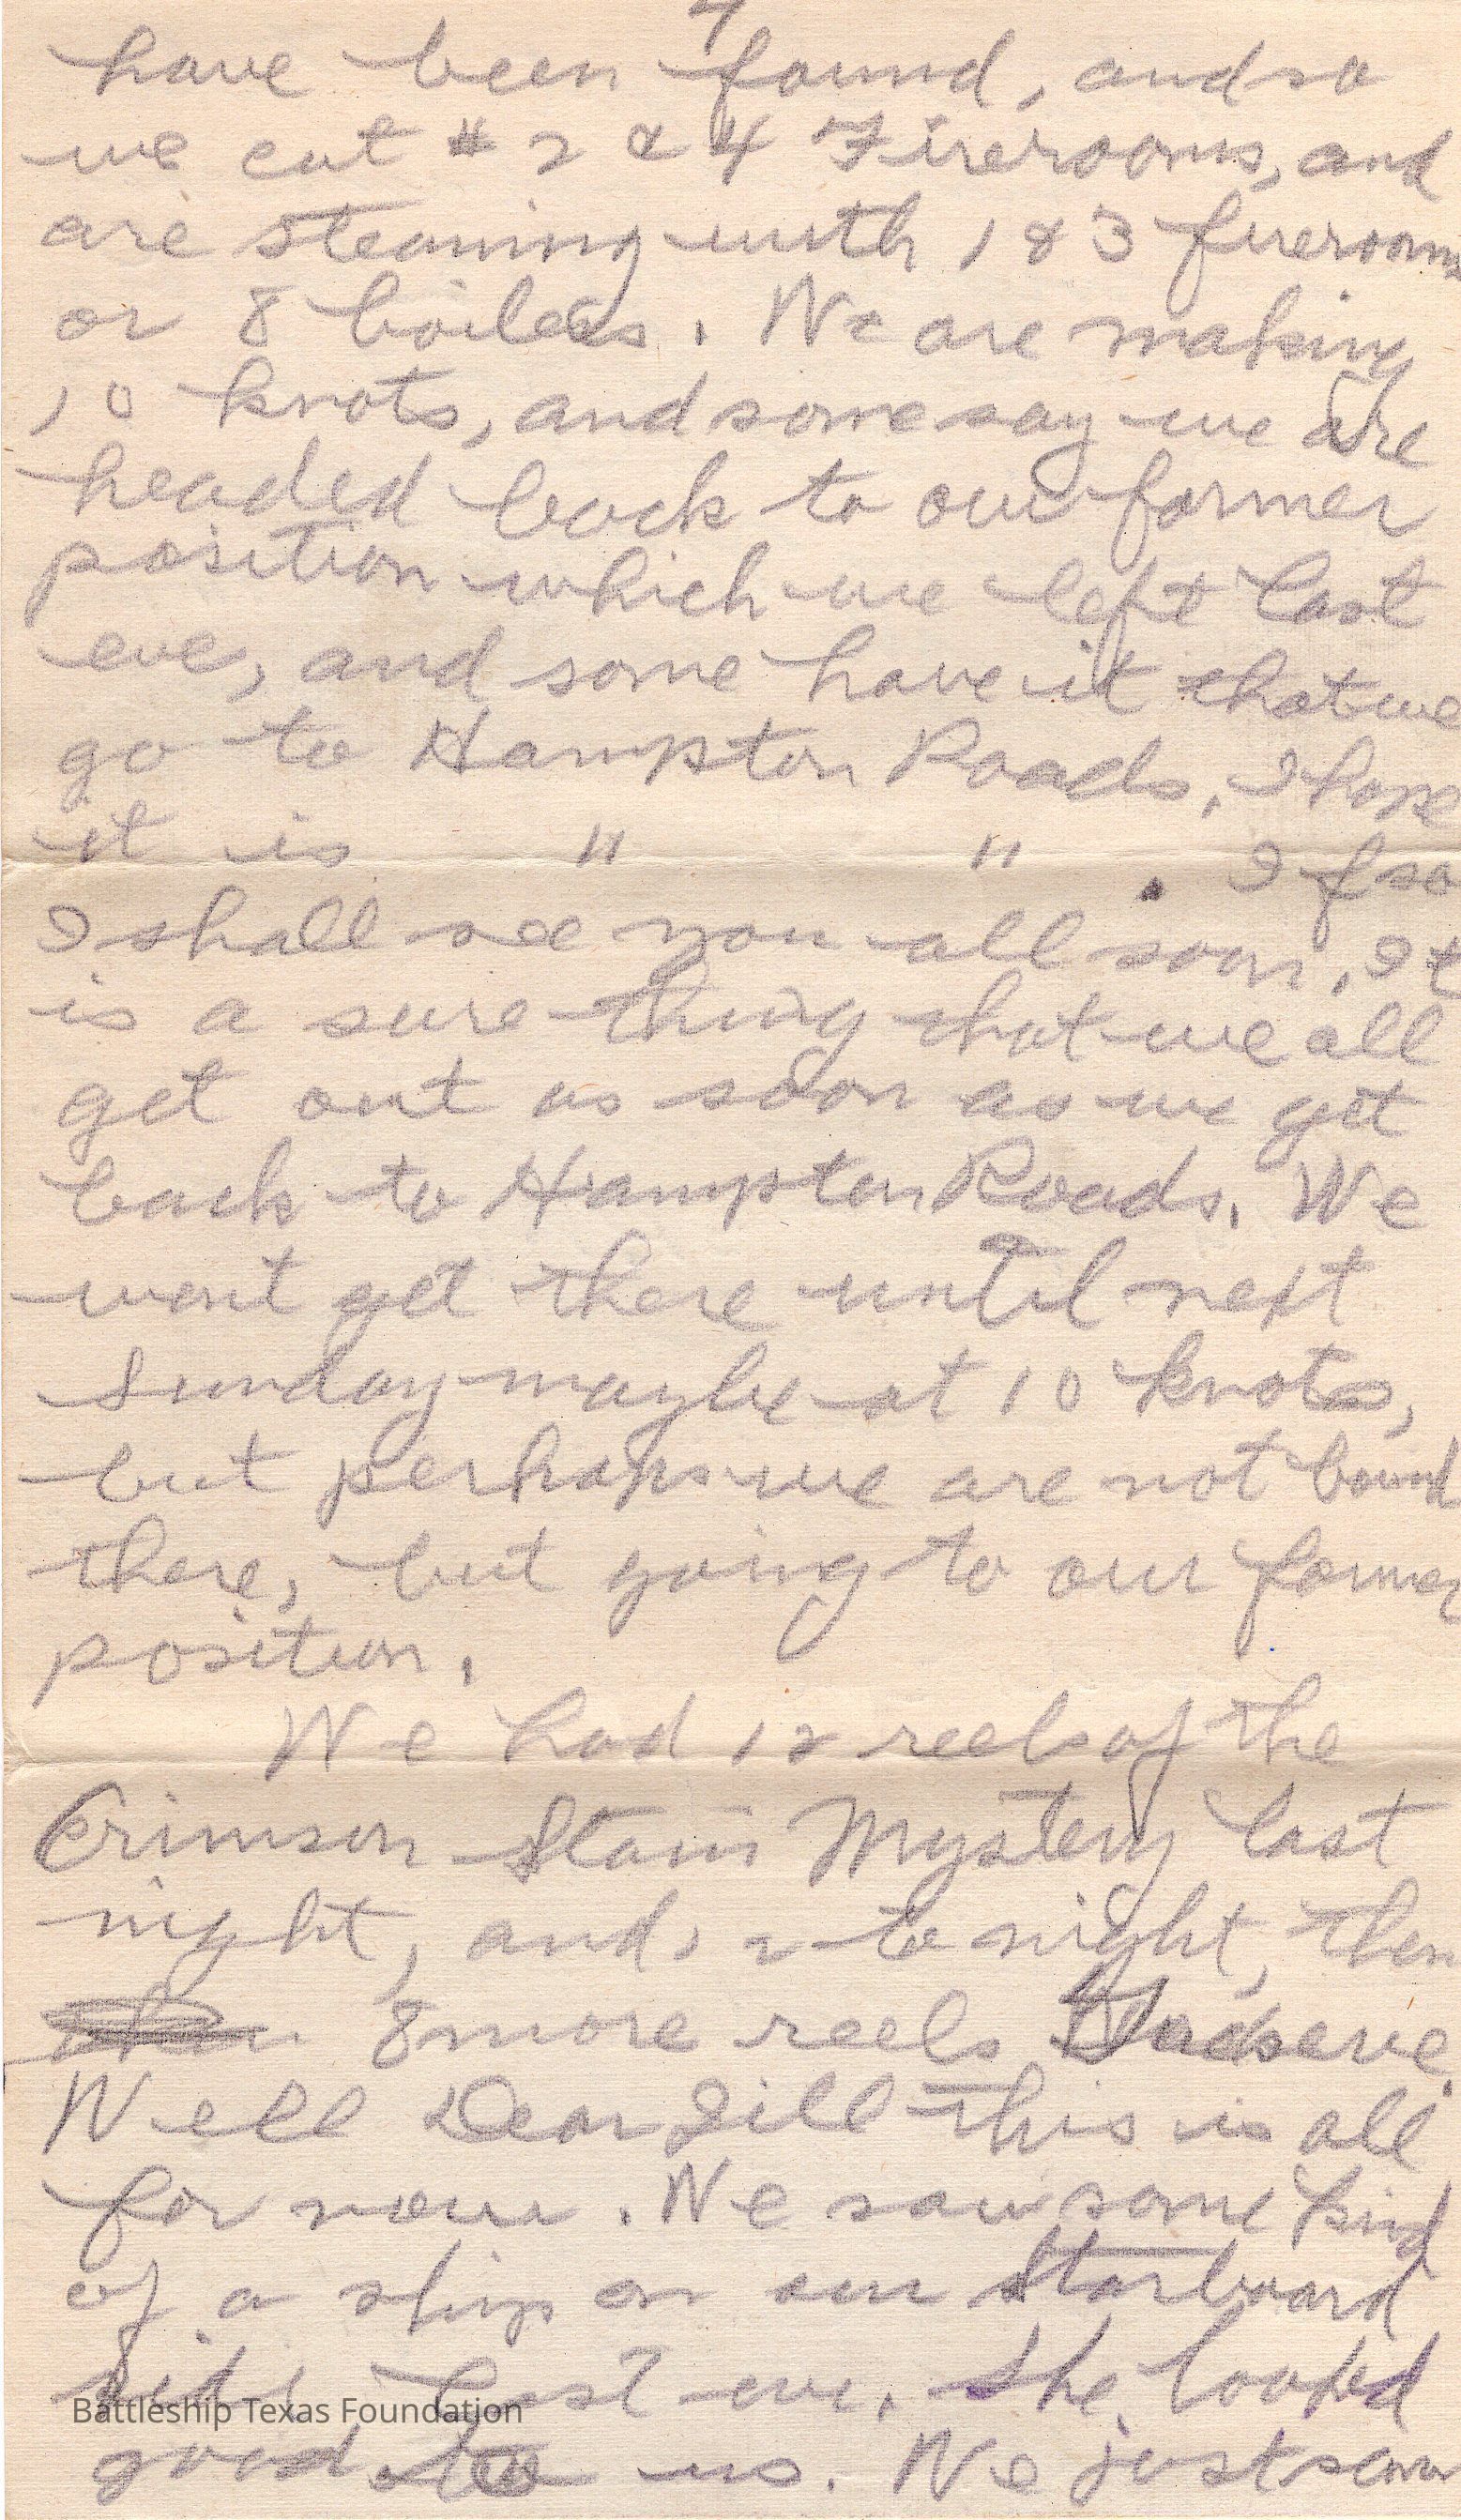 4
have been found, and so
we cut # 2 & 4 Firerooms, and
are steaming with 1 & 3 firerooms
or 8 boilers. We are making
10 knots, and some say we are
headed back to our former
position which we left last
eve, and some have it that we
go to Hampton Roads. I hope
it is " " . If so
I shall see you all soon. It
is a sure thing that we all
get out as soon as we get
back to Hampton Roads. We
wont get there until next
Sunday maybe at 10 knots,
but perhaps we are not bound
there, but going to our former
position.
We had 12 reels of the
Crimson Stain Mystery last
night, and 2 to night, then
8 more reels eve.
Well Dear Jill this is all
for now. We saw some kind
of a ship on our Starboard
side last eve. She looked
good to us. We just saw
Battleship Texas Foundation